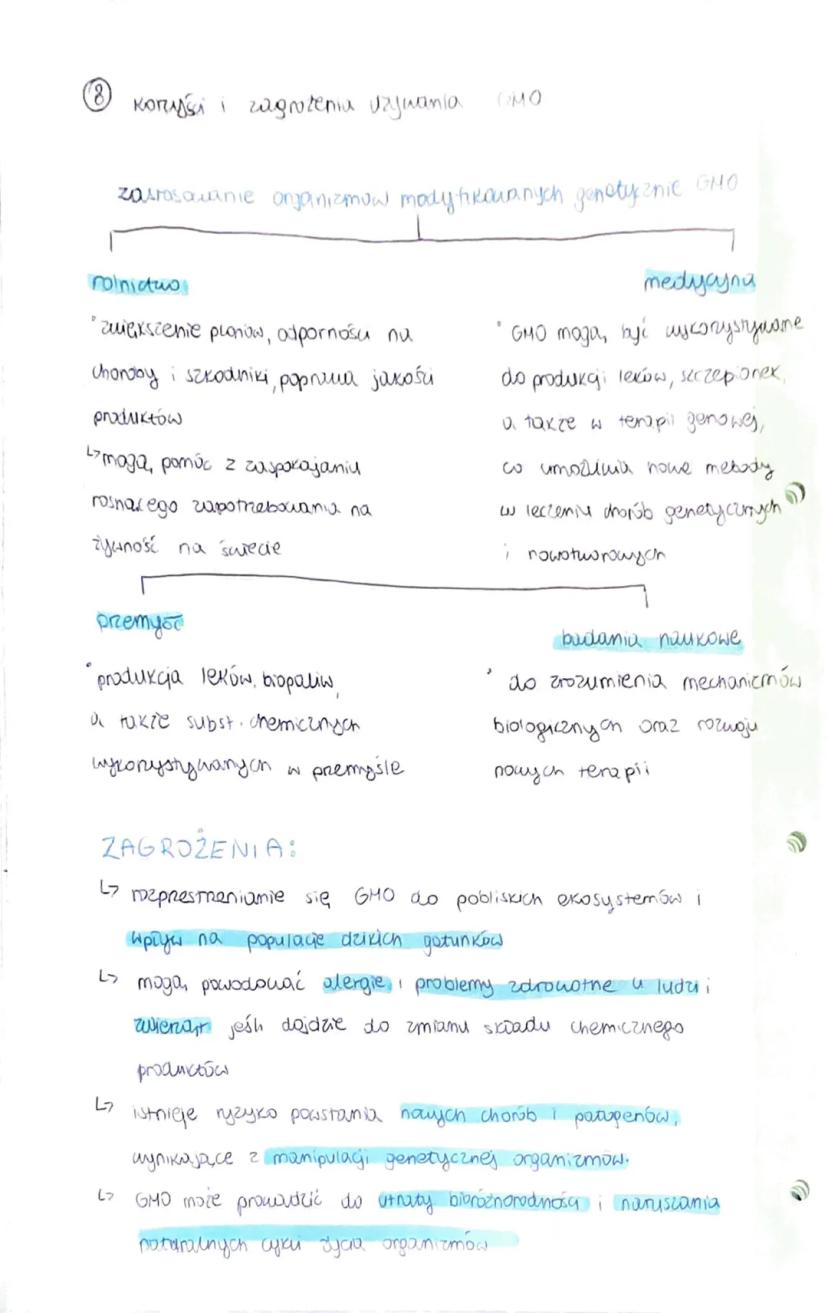 8 korzyści i zagrożenia używania GMO
zastosowanie organizmów modyfikowanych genetycznie GMO
rolnictwo
• zwiększenie plonów, odporności na
choroby i szkodniki, poprawa jakości
produktów
↳ mogą pomóc z zaspokajaniu
rosnącego zapotrzebowania na
żywność na świecie
medycyna
• GMO mogą być wykorzystywane
do produkcji leków, szczepionek,
a także w terapii genowej,
co umożliwia nowe metody
w leczeniu chorób genetycznych
i nowotworowych
przemysł
• produkcja leków, biopaliw,
a także subst. chemicznych
wykorzystywanych w przemyśle
badania naukowe
• do zrozumienia mechanizmów
biologicznych oraz rozwoju
nowych terapii
ZAGROŻENIA:
↳ rozprestrzenianie się GMO do pobliskich ekosystemów i
wpływ na populacje dzikich gatunków
↳ mogą powodować alergie i problemy zdrowotne u ludzi i
zwierząt jeśli dojdzie do zmianu składu chemicznego
produktów
↳ istnieje ryzyko powstania nowych chorób i patogenów,
wynikające z manipulacji genetycznej organizmów.
↳ GMO może prowadzić do utraty bioróżnorodności i naruszania
naturalnych cykli życia organizmów